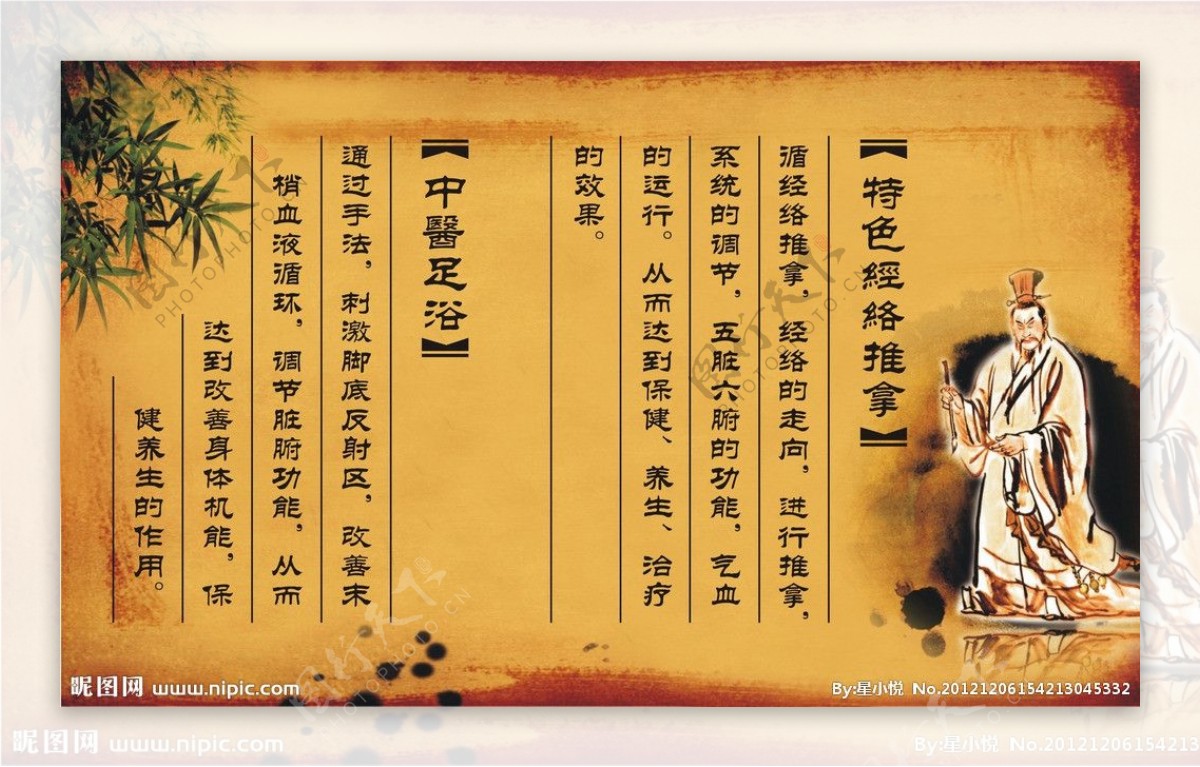 【特色經絡推拿】
循经络推拿，经络的走向，进行推拿，
系统的调节，五脏六腑的功能，气血
的运行。从而达到保健、养生、治疗
的效果。
【中醫足浴】
通过手法，刺激脚底反射区，改善末
梢血液循环，调节脏腑功能，从而
达到改善身体机能，保
健养生的作用。
昵图网 www.nipic.com
By:星小悦 No.20121206154213045332
昵图网 www.nipic.com
By:星小悦 No.20121206154213